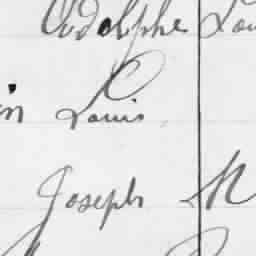 Adolphe Lou
in Louis
Joseph M